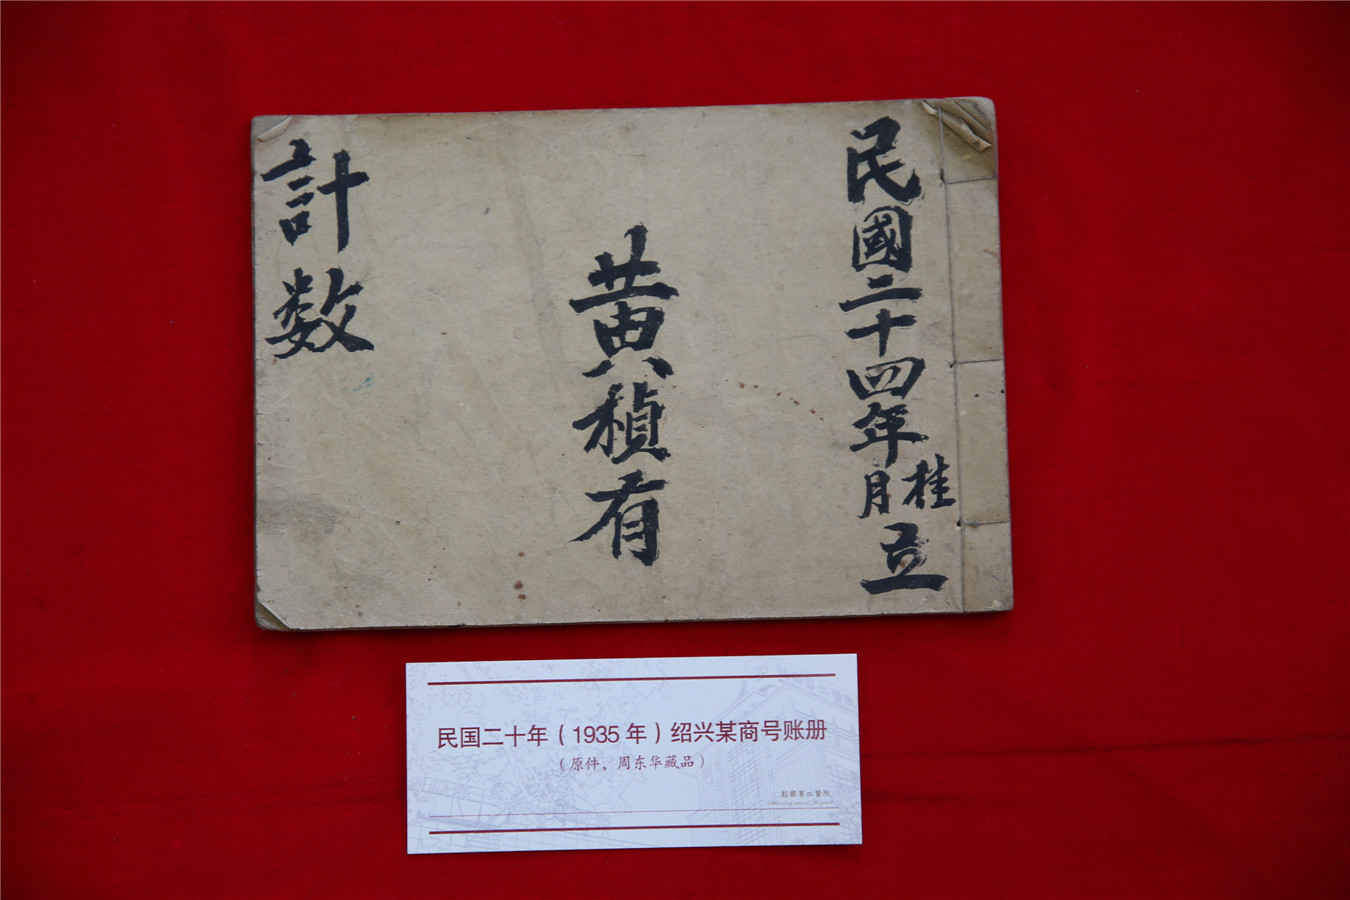 民國二十四年桂月立
黄楨有
計数
民国二十年（1935 年）绍兴某商号账册
（原件，周东华藏品）